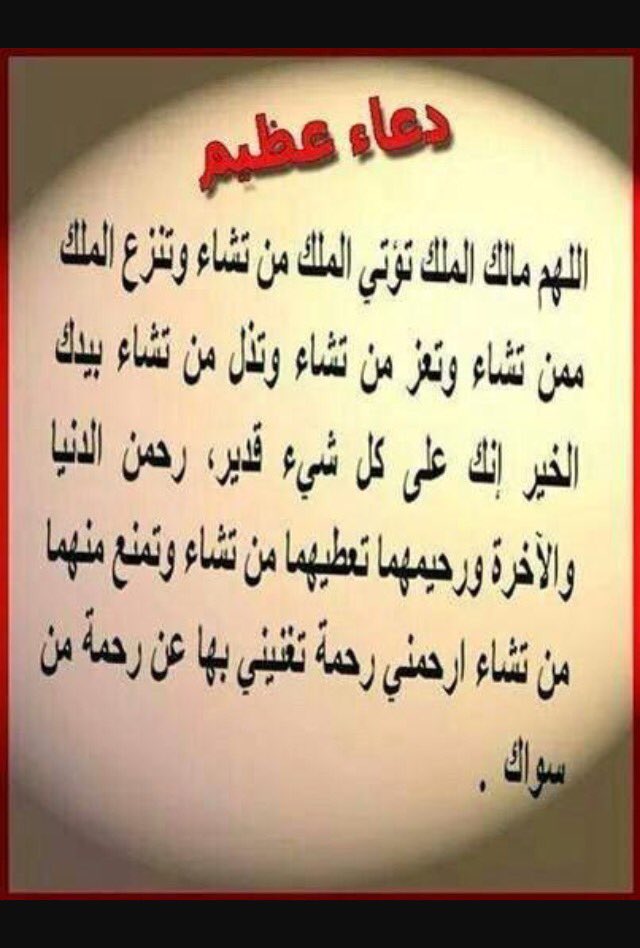 دعاء عظيم
اللهم مالك الملك تؤتي الملك من تشاء وتنزع الملك
ممن تشاء وتعز من تشاء وتذل من تشاء بيدك
الخير إنك على كل شيء قدير، رحمن الدنيا
والآخرة ورحيمهما تعطيهما من تشاء وتمنع منهما
من تشاء ارحمني رحمة تغنيني بها عن رحمة من
سواك .